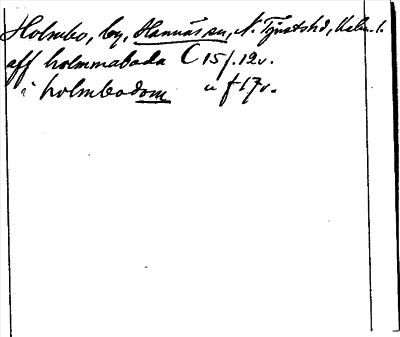 Holmbo, by, Hannäs sn, N. Tjustshd, Kalm. l.
aff holmmaboda C 15 f. 12v.
i holmbodom u f 17v.